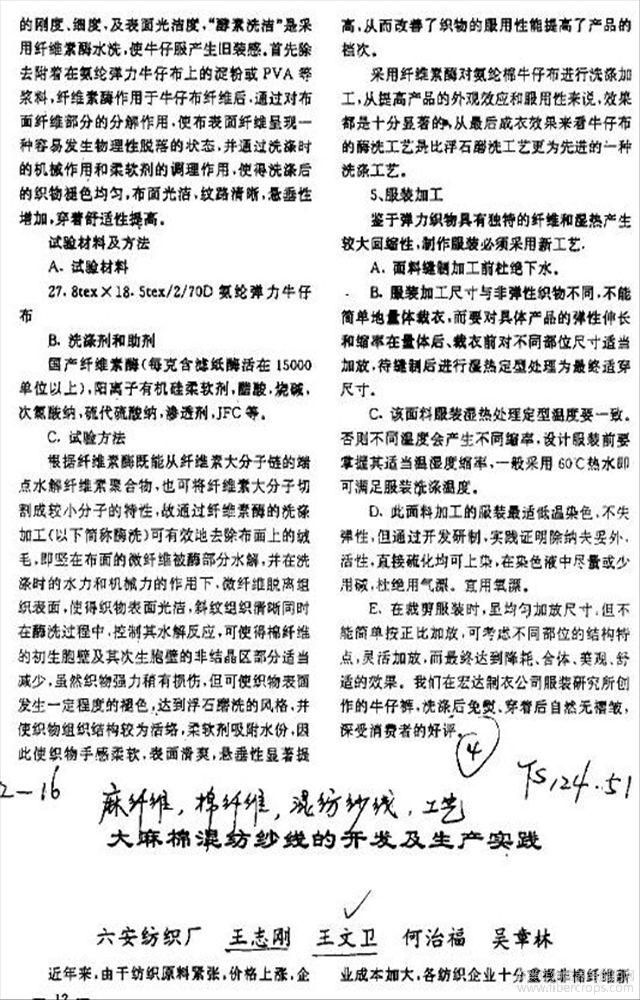 的刚度、细度,及表面光洁度,“酵素洗洁”是采
用纤维素酶水洗,使牛仔服产生旧装感。首先除
去附着在氨纶弹力牛仔布上的淀粉或 PVA 等
浆料,纤维素酶作用于牛仔布纤维后,通过对布
面纤维部分的分解作用,使布表面纤维呈现一
种容易发生物理性脱落的状态,并通过洗涤时
的机械作用和柔软剂的调理作用,使得洗涤后
的织物褪色均匀,布面光洁,纹路清晰,悬垂性
增加,穿着舒适性提高。
试验材料及方法
A. 试验材料
27.8tex×18.5tex/2/70D 氨纶弹力牛仔
布
B. 洗涤剂和助剂
国产纤维素酶(每克含滤纸酶活在 15000
单位以上),阳离子有机硅柔软剂,醋酸,烧碱,
次氯酸钠,硫代硫酸钠,渗透剂,JFC 等。
C. 试验方法
根据纤维素酶既能从纤维素大分子链的端
点水解纤维素聚合物,也可将纤维素大分子切
割成较小分子的特性,故通过纤维素酶的洗涤
加工(以下简称酶洗)可有效地去除布面上的绒
毛,即竖在布面的微纤维被酶部分水解,并在洗
涤时的水力和机械力的作用下,微纤维脱离组
织表面,使得织物表面光洁,斜纹组织清晰同时
在酶洗过程中,控制其水解反应,可使得棉纤维
的初生胞壁及其次生胞壁的非结晶区部分适当
减少,虽然织物强力稍有损伤,但可使织物表面
发生一定程度的褪色,达到浮石磨洗的风格,并
使织物组织结构较为活络,柔软剂吸附水份,因
此使织物手感柔软,表面滑爽,悬垂性显著提
高,从而改善了织物的服用性能提高了产品的
档次。
采用纤维素酶对氨纶棉牛仔布进行洗涤加
工,从提高产品的外观效应和服用性来说,效果
都是十分显著的,从最后成衣效果来看牛仔布
的酶洗工艺是比浮石磨洗工艺更为先进的一种
洗涤工艺。
5、服装加工
鉴于弹力织物具有独特的纤维和湿热产生
较大回缩性,制作服装必须采用新工艺.
A. 面料缝制加工前杜绝下水。
B. 服装加工尺寸与非弹性织物不同,不能
简单地量体裁衣,而要对具体产品的弹性伸长
和缩率在量体后、裁衣前对不同部位尺寸适当
加放,待缝制后进行湿热定型处理为最终适穿
尺寸。
C. 该面料服装湿热处理定型温度要一致。
否则不同温度会产生不同缩率,设计服装前要
掌握其适当温湿度缩率,一般采用 60℃热水即
可满足服装洗涤温度。
D. 此面料加工的服装最适低温染色,不失
弹性,但通过开发研制,实践证明除纳夫妥外,
活性,直接硫化均可上染,在染色液中尽量或少
用碱,杜绝用气漂。宜用氧漂。
E. 在裁剪服装时,虽均匀加放尺寸,但不
能简单按正比加放,可考虑不同部位的结构特
点,灵活加放,而最终达到降耗、合体、美观、舒
适的效果。我们在宏达制衣公司服装研究所创
作的牛仔裤,洗涤后免熨、穿着后自然无褶皱,
深受消费者的好评。
④
2-16
TS124.51
麻纤维,棉纤维,混纺纱线,工艺
大麻棉混纺纱线的开发及生产实践
六安纺织厂 王志刚 王文卫 何治福 吴章林
近年来,由于纺织原料紧张,价格上涨,企
业成本加大,各纺织企业十分重视非棉纤维新
— 12 —
www.fibercrops.com